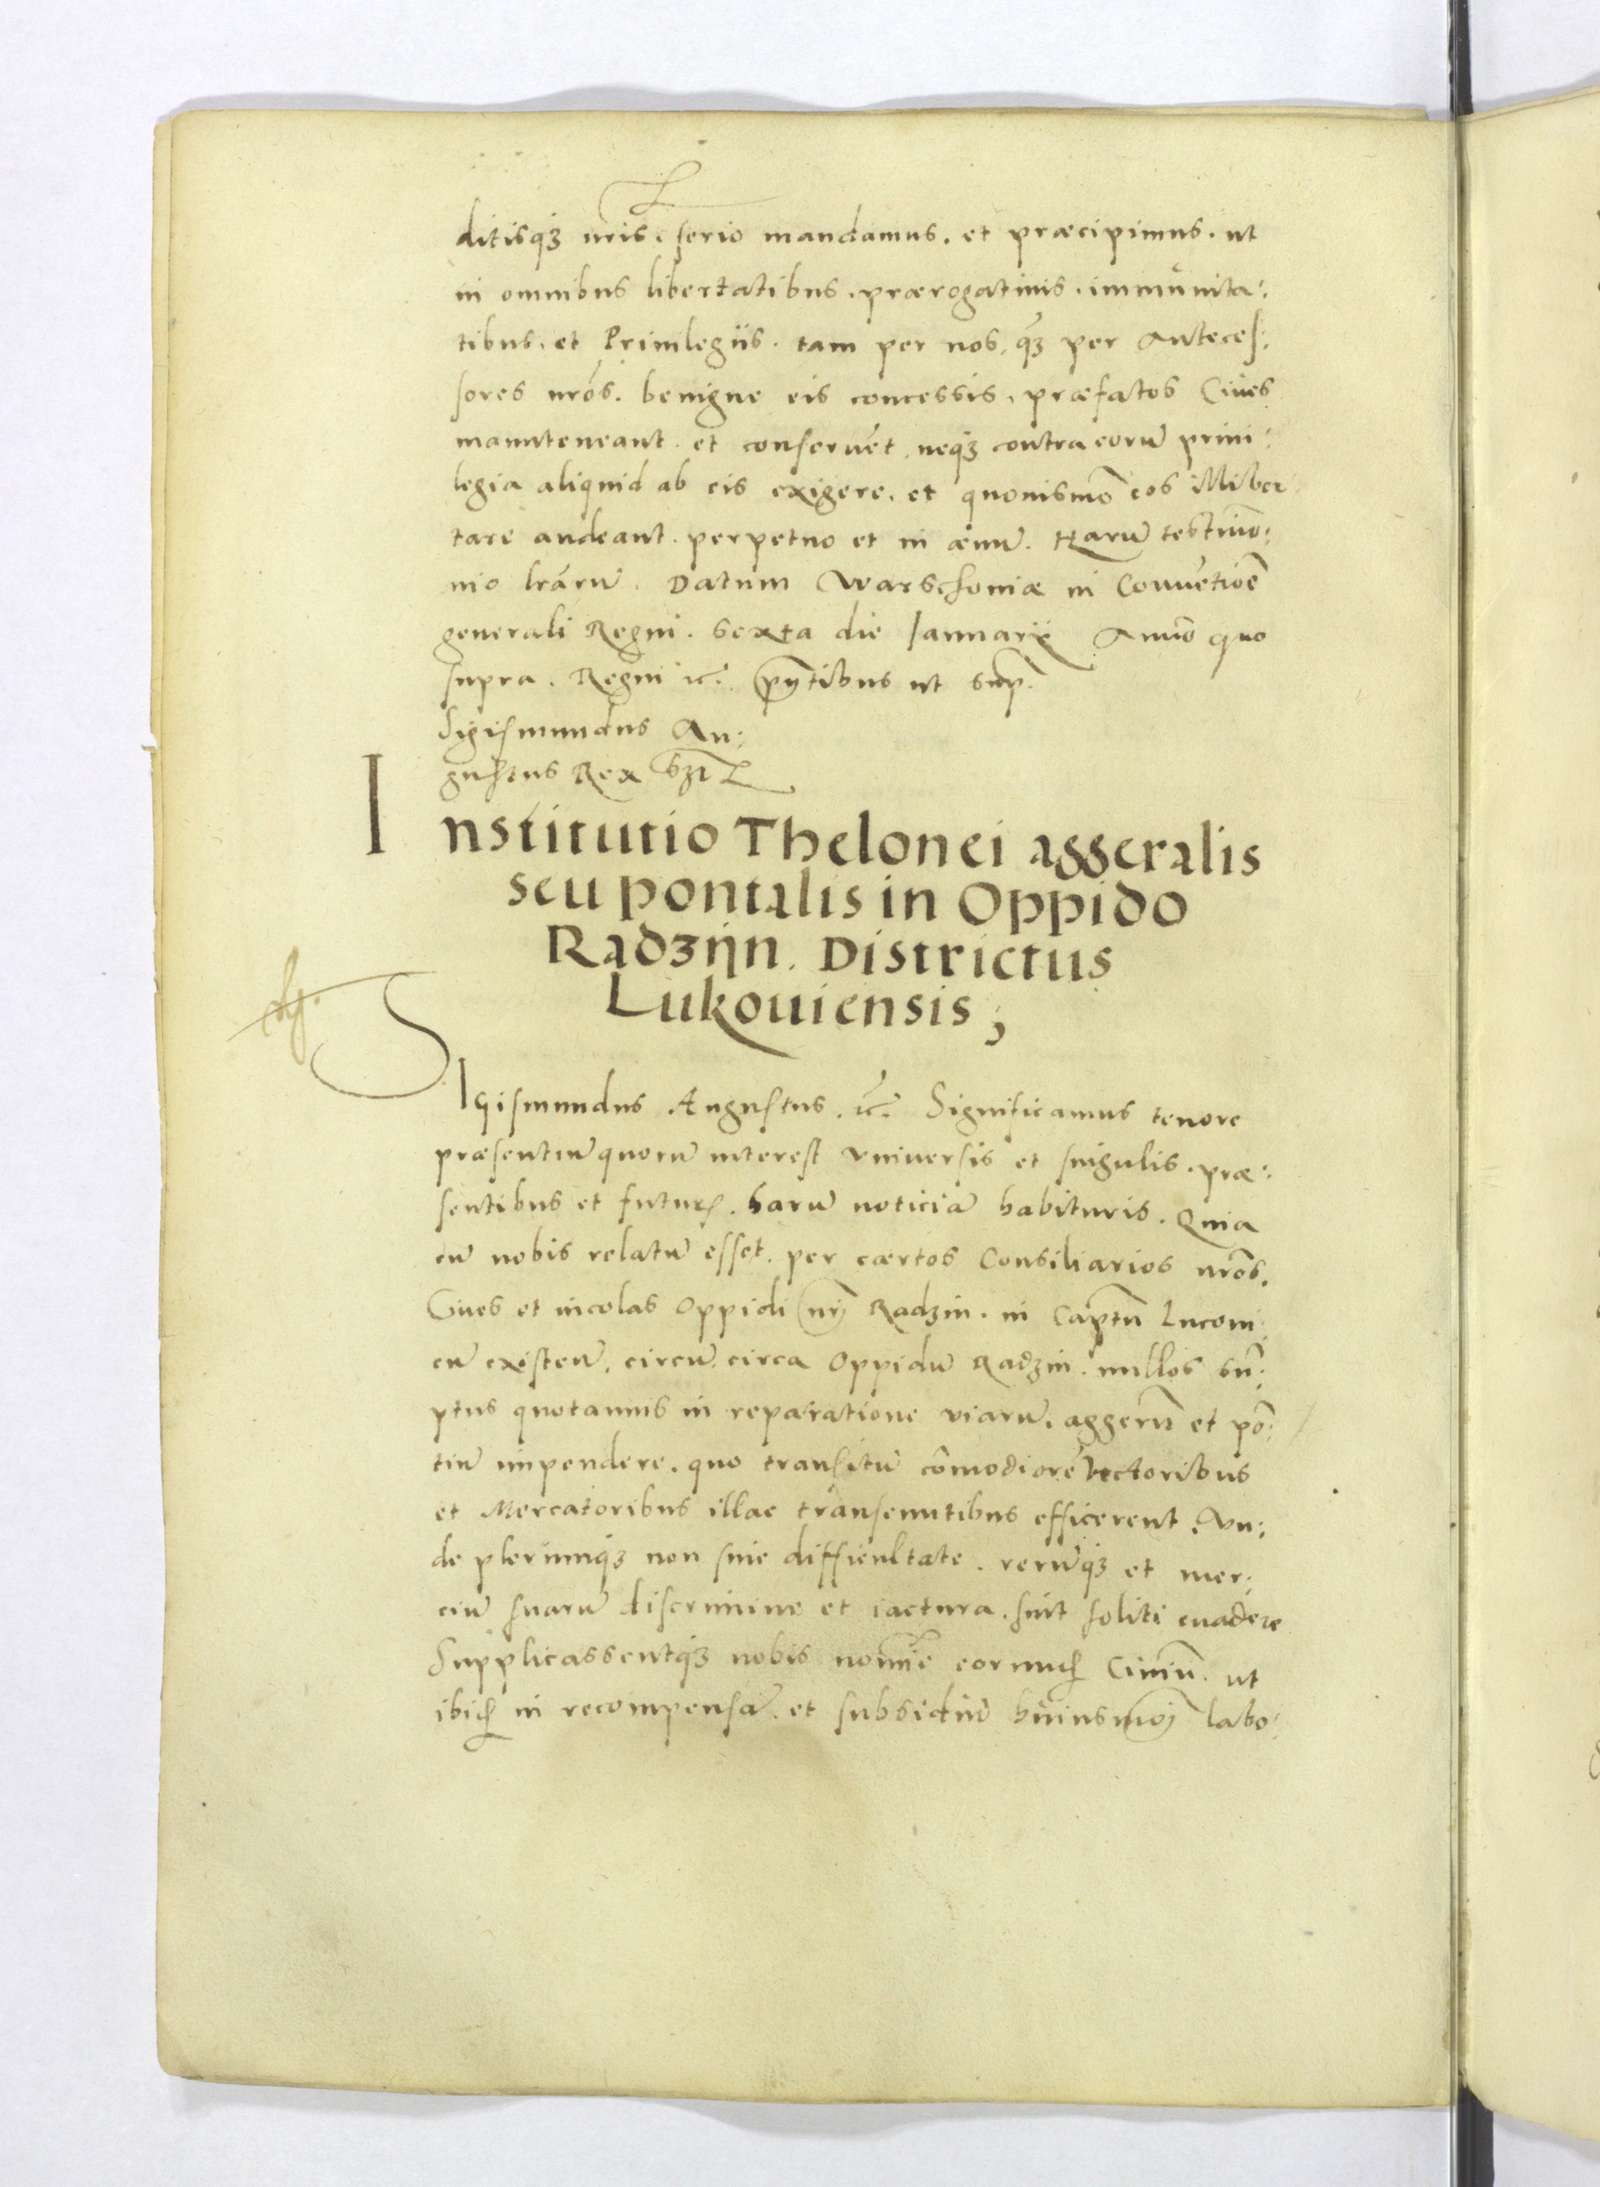 ditisq3 nr̄is. serio mandamus. et præcipimus. ut
in omnibus libertatibus. prærogatiuis. immunita:
tibus. et Priuilegijs. tam per nos. q̄3 per Anteces:
sores nrōs. benigne eis concessis. præfatos Ciues
manuteneant. et conseruēt. neq3 contra eorū priui:
legia aliquid ab eis exigere. et quouismō eos
tare audeant. perpetuo et in æuū. Harū testimo:
nio lrārū. Datum Warschouiæ in Conuētiōe
generali Regni. Sexta die Ianuarij Anno quo
supra. Regni ꝛc̄. pn̄tibus ut sup̄.
Sigismundus Au:
gustus Rex sst
Institutio Thelonei aggeralis
seu pontalis in Oppido
Radzijn. Districtus
Lukouiensis;
SIgismundus Augustus. ꝛc̄. Significamus tenore
præsentiū quorū interest vniuersis et singulis. præ:
sentibus et futur̄. harū noticiā habituris. Quia
cū nobis relatū esset. per cærtos Consiliarios nrōs.
Ciues et incolas Oppidi nr̄i Radzin. in Capt̄u Lucoui:
cn̄ existen̄. circū circa Oppidū Radzin. nullos sū:
ptus quotannis in reparatione viarū. aggerū et pō:
tiū impendere. quo transitū cōmodiorē vectoribus
et Mercatoribus illac transeuntibus efficerent. Vn:
de plerumq3 non sine difficultate. rerūq3 et mer:
ciū suarū discrimine et iactura. sint soliti euadere
Supplicassentq3 nobis noīe eorund̄ Ciuiū. ut
ibid̄ in recompensā. et subsidiū huiusmōi labo: